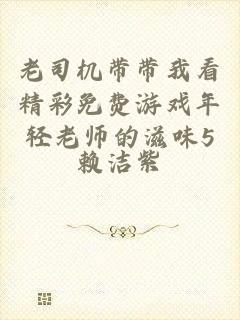 老司机带带我看
精彩免费游戏年
轻老师的滋味5
赖洁紫